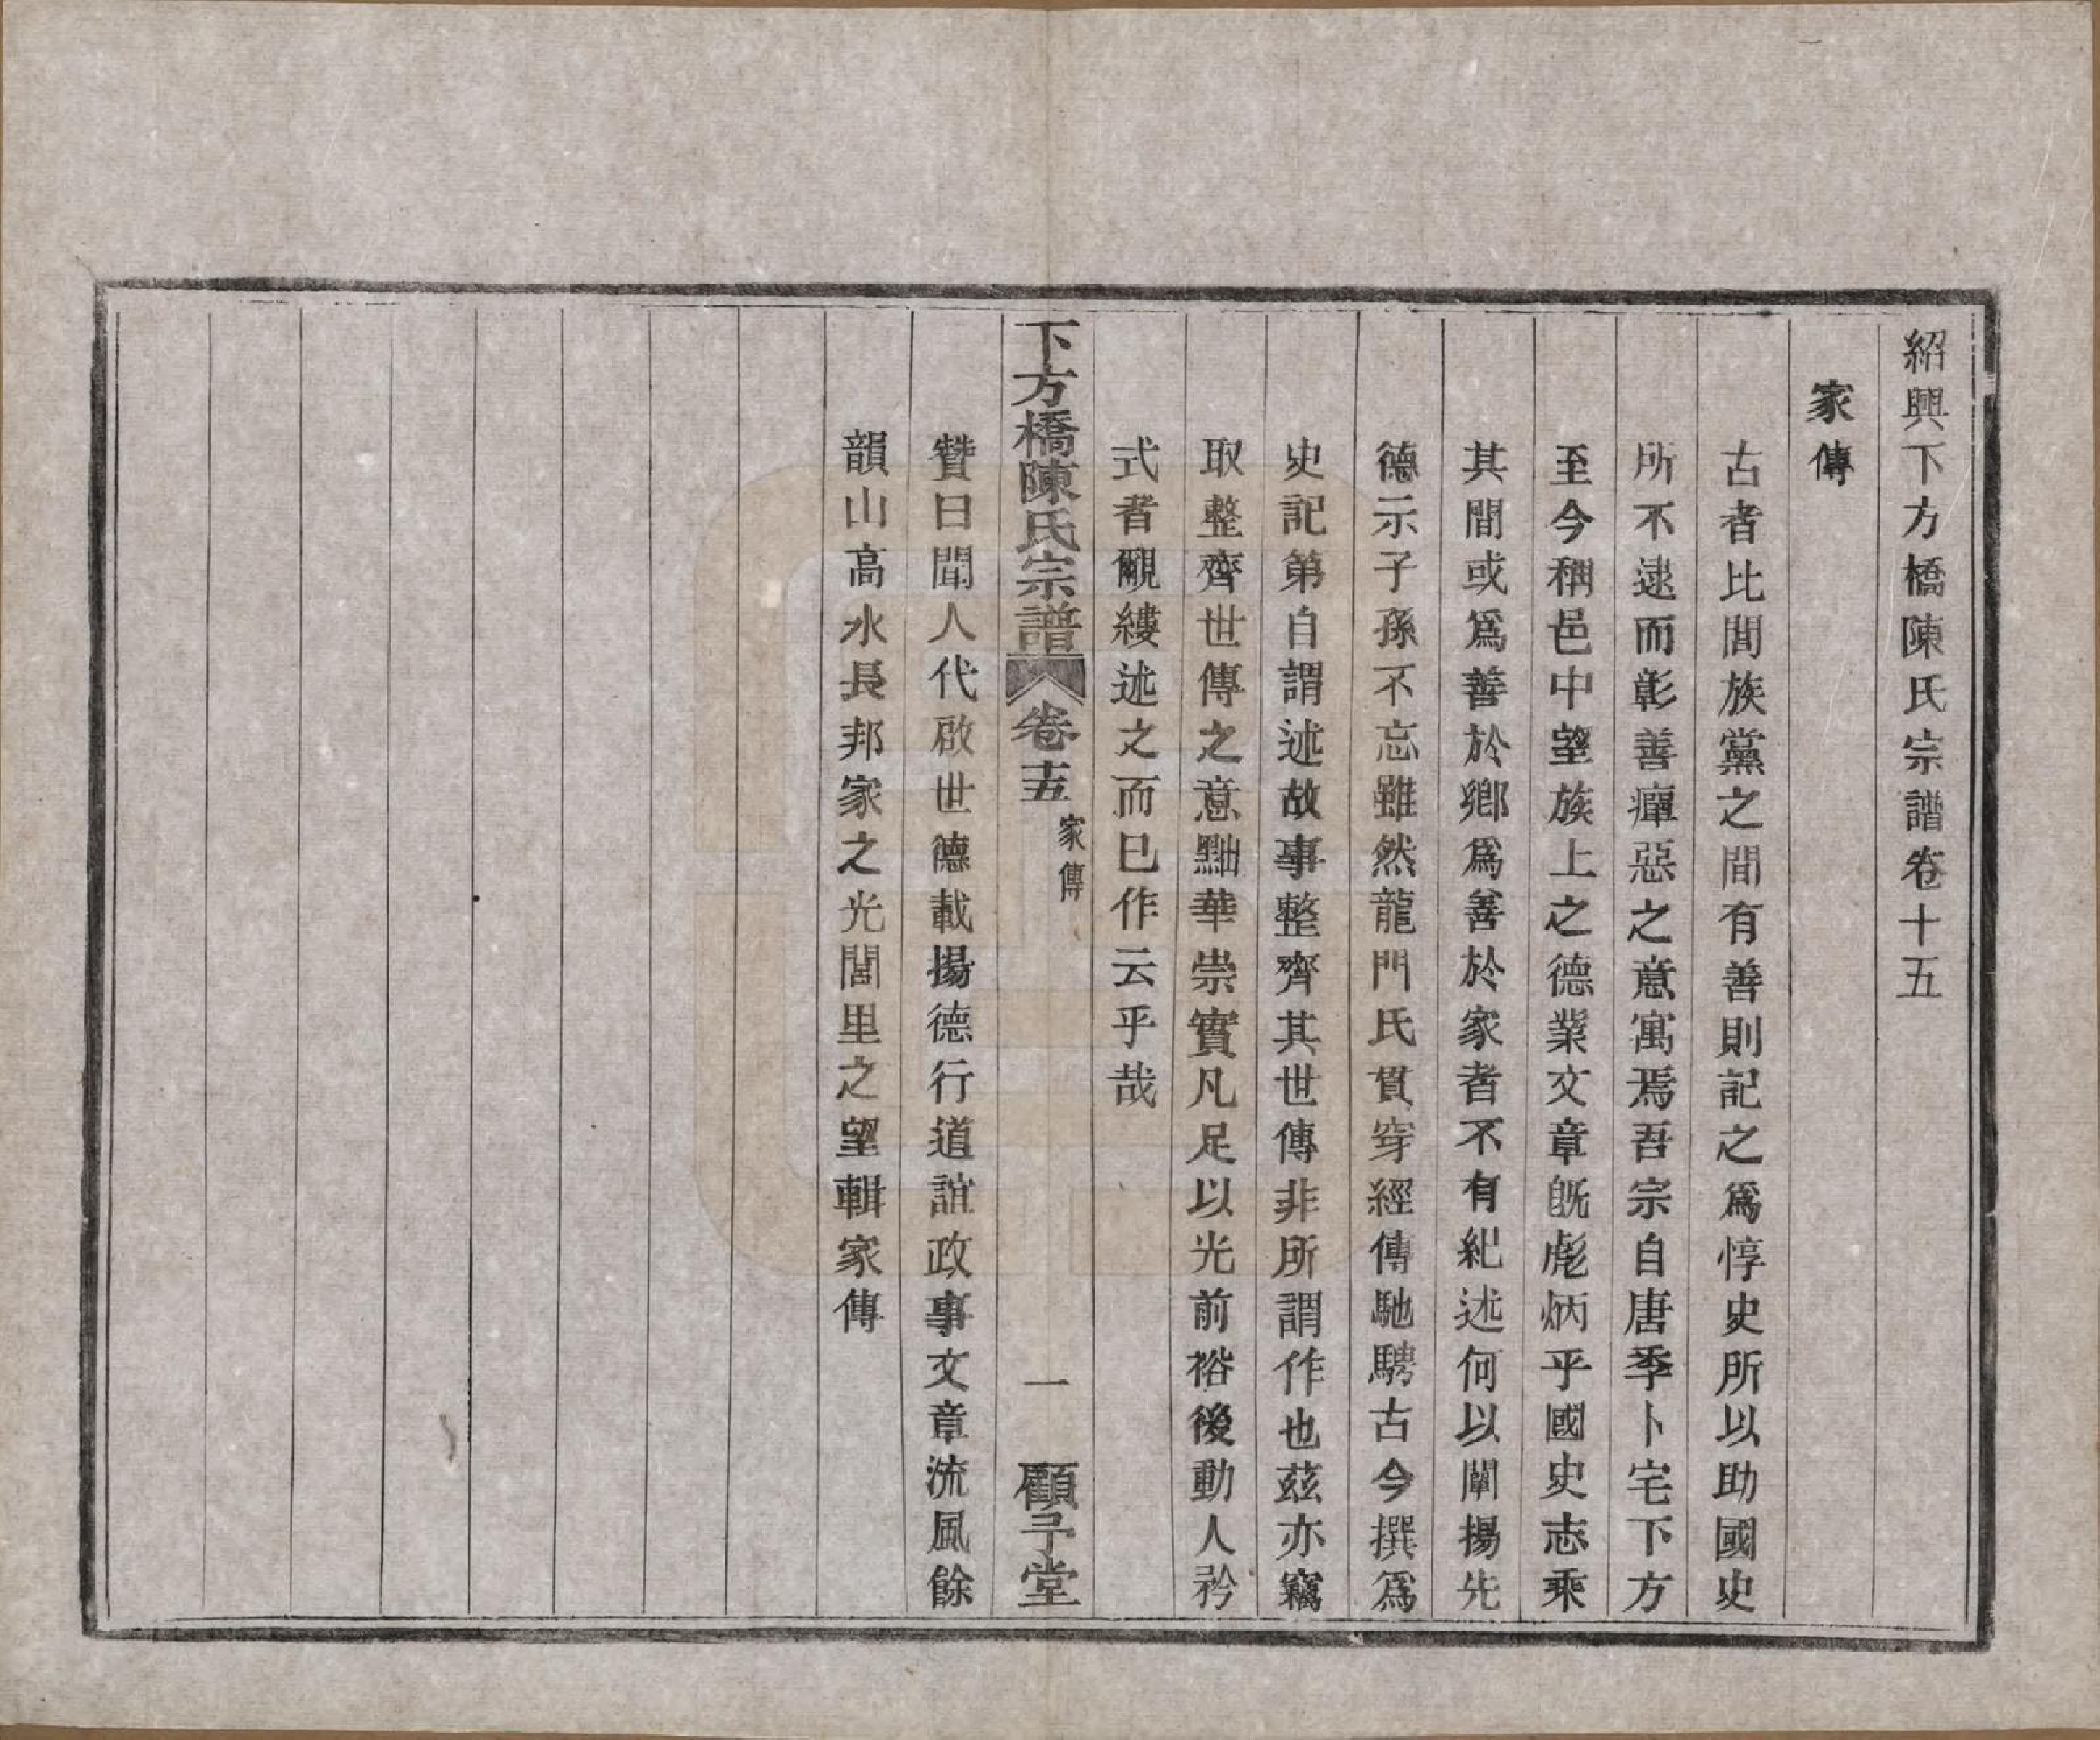 紹興下方橋陳氏宗譜卷十五
家傳
古者比閭族黨之間有善則記之爲惇史所以助國史
所不逮而彰善癉惡之意寓焉吾宗自唐季卜宅下方
至今稱邑中望族上之德業文章旣彪炳乎國史志乘
其間或爲善於鄉爲善於家者不有紀述何以闡揚先
德示子孫不忘雖然龍門氏貫穿經傳馳騁古今撰爲
史記第自謂述故事整齊其世傳非所謂作也茲亦竊
取整齊世傳之意黜華崇實凡足以光前裕後動人矜
式者覼縷述之而已作云乎哉
下方橋陳氏宗譜 卷十五 家傳 一 顧予堂
贊曰聞人代啟世德載揚德行道誼政事文章流風餘
韻山高水長邦家之光閭里之望輯家傳